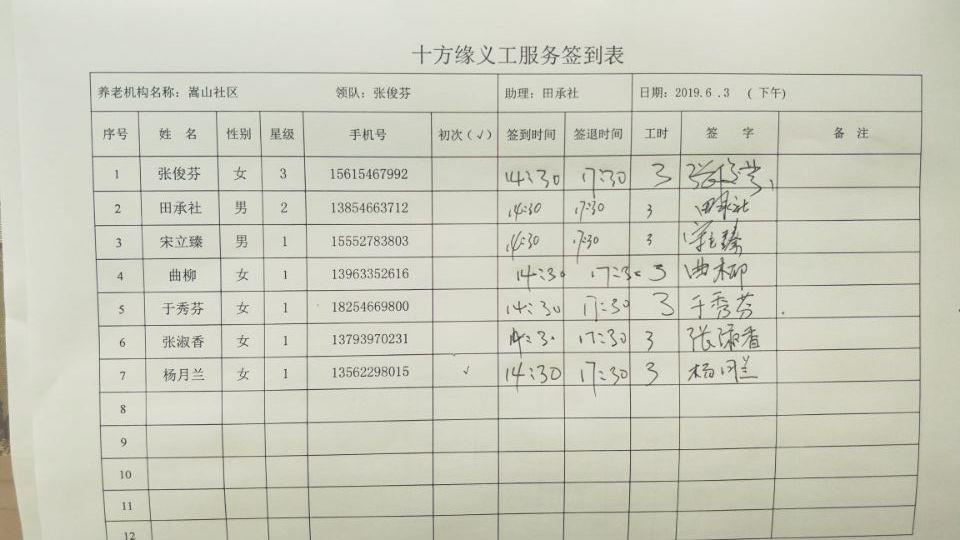 十方缘义工服务签到表
养老机构名称：嵩山社区 领队：张俊芬 助理：田承社 日期：2019.6.3 （下午）
序号 姓 名 性别 星级 手机号 初次（√） 签到时间 签退时间 工时 签 字 备 注
1 张俊芬 女 3 15615467992 14:30 17:30 3 张俊芬
2 田承社 男 2 13854663712 14:30 17:30 3 田承社
3 宋立臻 男 1 15552783803 14:30 17:30 3 宋立臻
4 曲柳 女 1 13963352616 14:30 17:30 3 曲柳
5 于秀芬 女 1 18254669800 14:30 17:30 3 于秀芬
6 张淑香 女 1 13793970231 14:30 17:30 3 张淑香
7 杨月兰 女 1 13562298015 √ 14:30 17:30 3 杨月兰
8
9
10
11
12